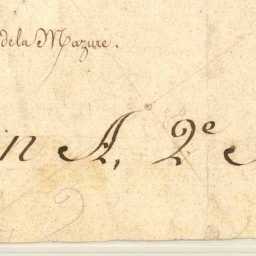 de la Mazure.
in A, 2e